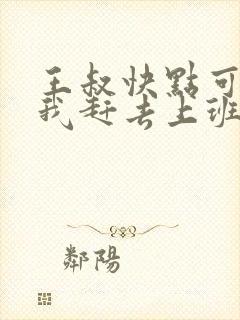 王叔快點可
我赶去上班
鄰陽